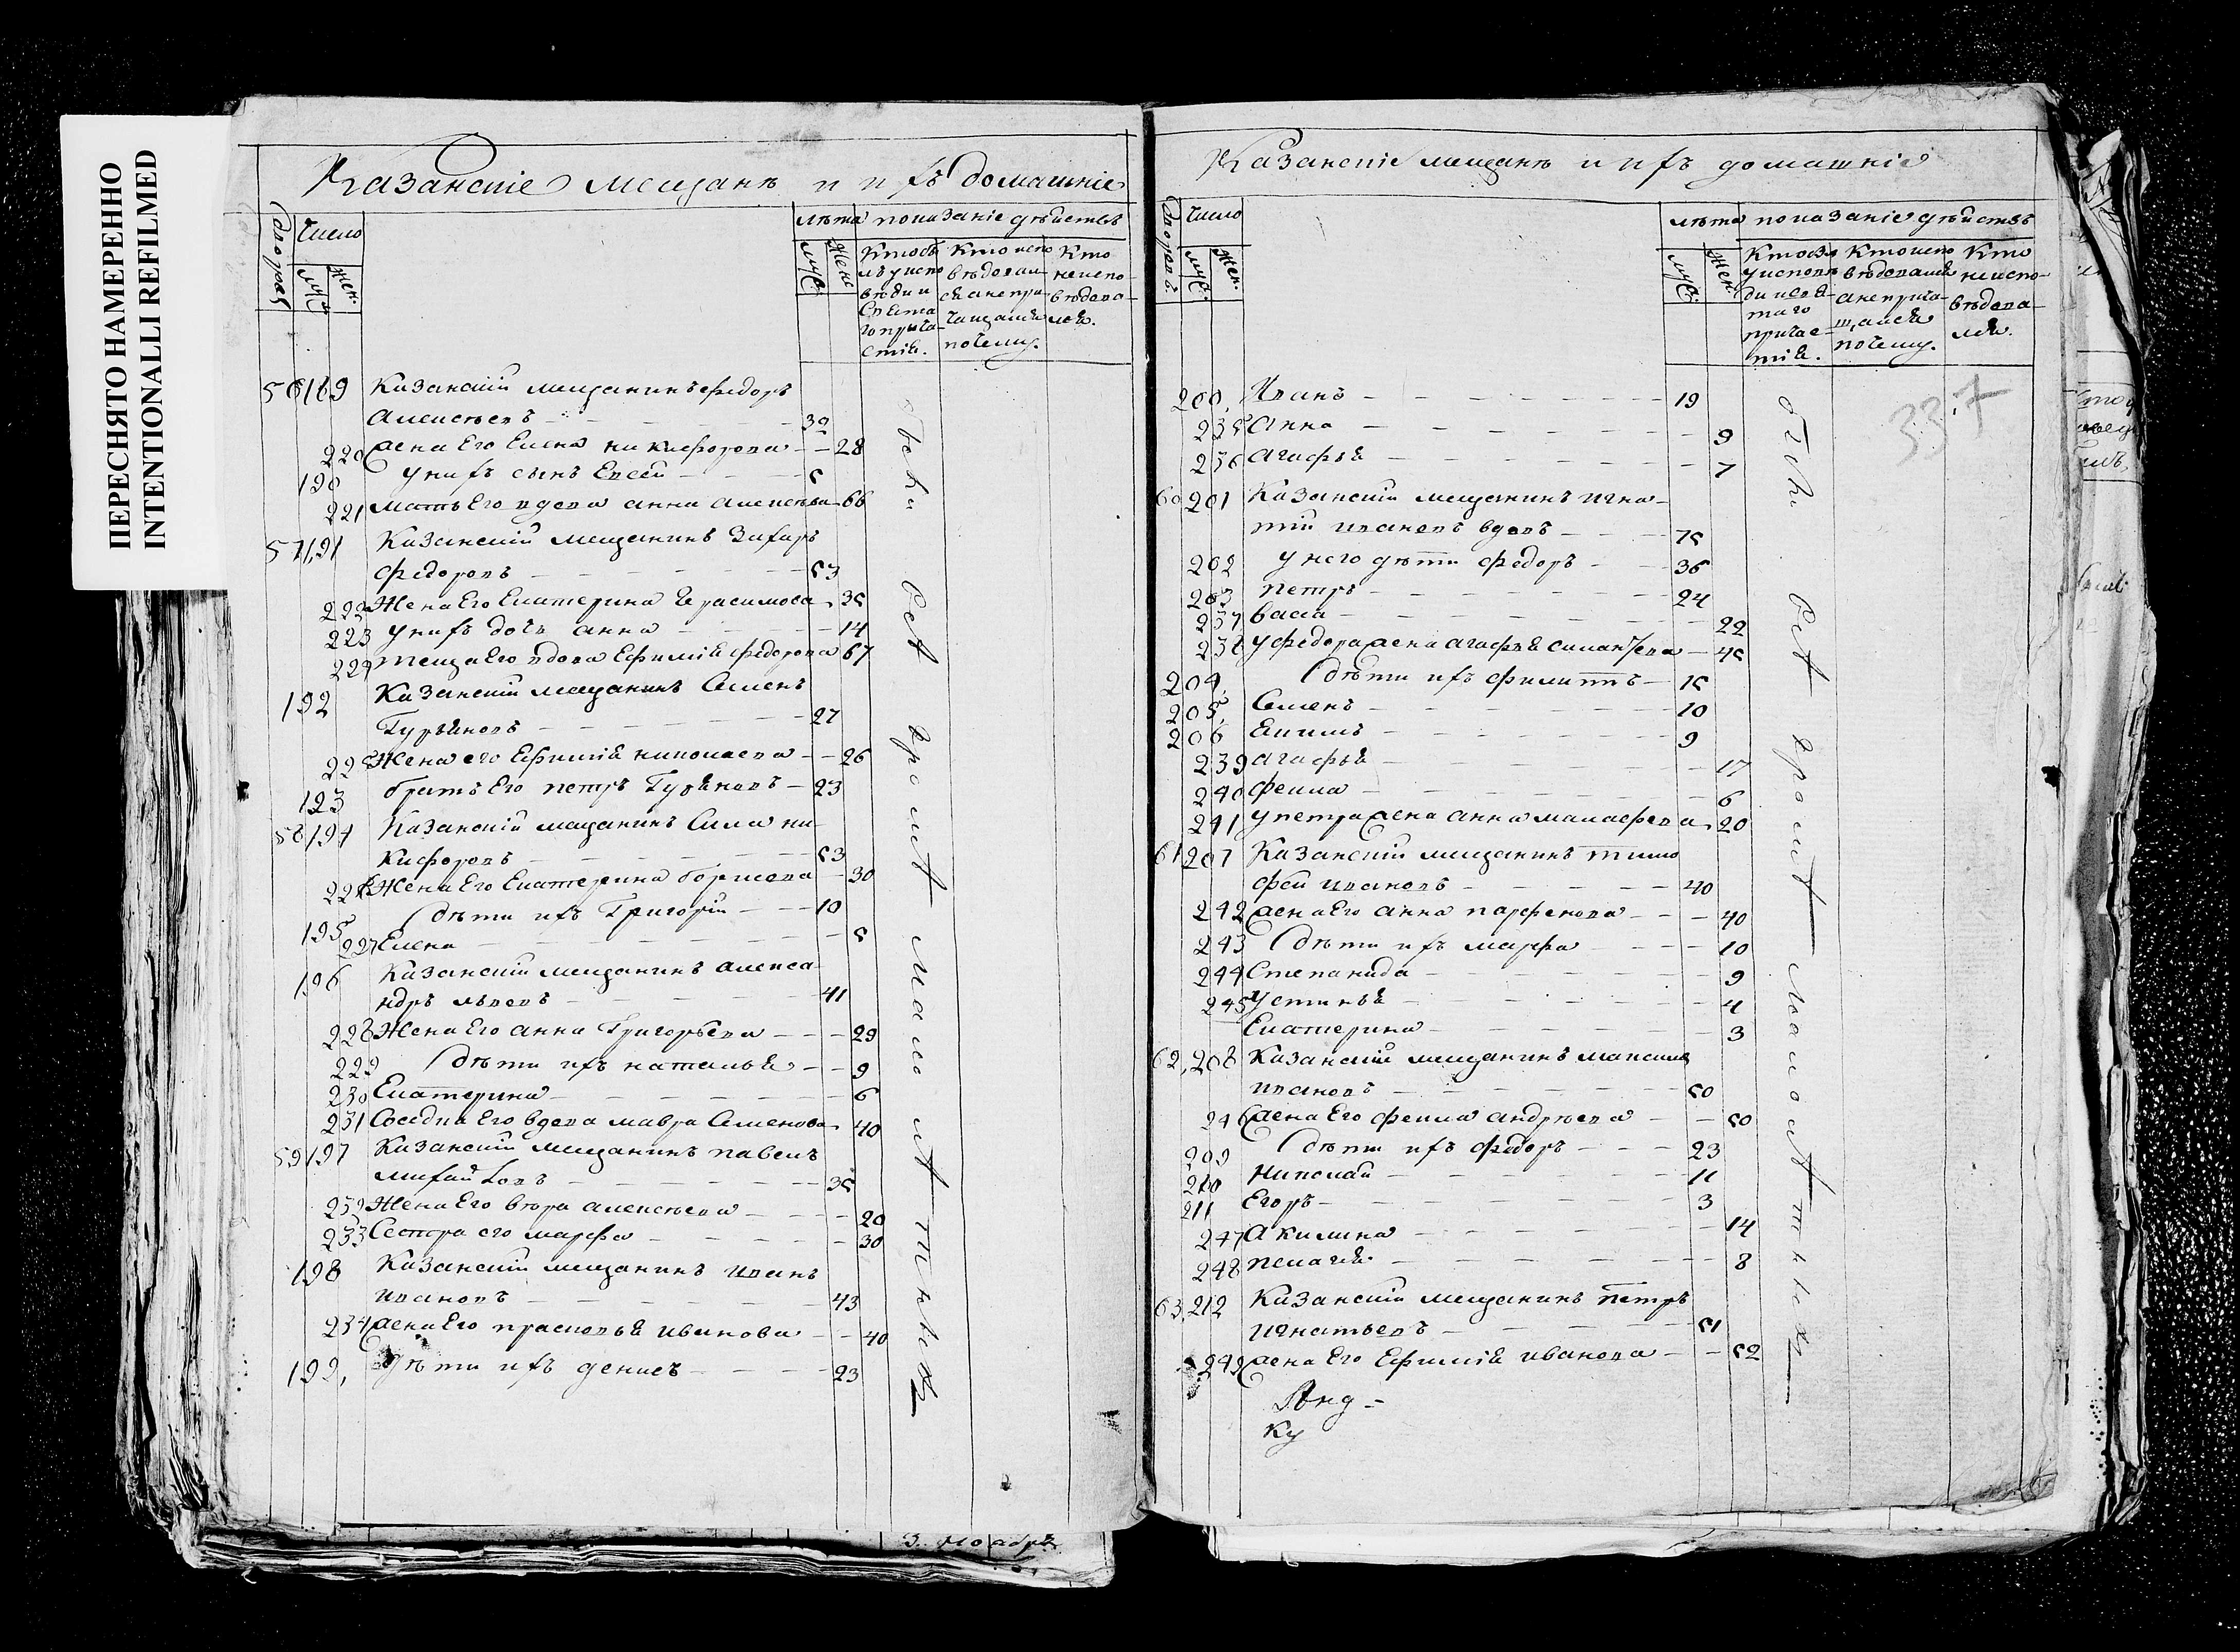 ПЕРЕСНЯТО НАМЕРЕННО
INTENTIONALLI REFILMED
Казанскіе мещанѣ и ихъ домашніе
Число
лѣта показаніе дѣйствъ
муж.
жен.
муж.
жен.
Кто былъ у исповѣди и Святаго причастія.
Кто исповѣдовался а не причащался и почему.
Кто не исповѣдовался.
56 189 Казанскій мещанинъ федоръ
Алексѣевъ 32
220 жена Его Елена никифорова 28
190 у нихъ сынъ Евсей 5
221 мать Его вдова анна алексѣева 66
57 191 Казанскій мещанинъ Захаръ
федоровъ 53
222 Жена Его Екатерина Герасимова 35
223 у нихъ дочь анна 14
224 теща Его вдова Ефимія федорова 67
192 Казанскій мещанинъ Семенъ
Гурьяновъ 27
225 Жена его Ефимія николаева 26
193 братъ Его петръ Гурьяновъ 23
58 194 Казанскій мещанинъ Сила ни-
кифоровъ 53
226 Жена Его Екатерина борисова 30
195 дѣти ихъ Григорій 10
227 Елена 5
196 Казанскій мещанинъ алекса-
ндръ львовъ 41
228 Жена Его анна Григорьева 29
229 дѣти ихъ наталья 9
230 Екатерина 6
231 Соседка Его вдова мавра Семенова 40
59 197 Казанскій мещанинъ павелъ
михайловъ 35
232 Жена Его вѣра алексѣева 20
233 Сестра его марфа 30
198 Казанскій мещанинъ иванъ
ивановъ 43
234 жена Его прасковья иванова 40
199 дѣти ихъ денисъ 23
Казанскіе мещанѣ и ихъ домашніе
Число
лѣта показаніе дѣйствъ
муж.
жен.
муж.
жен.
Кто былъ у исповѣди и святаго причастія.
Кто исповѣдовался а не причащался и почему.
Кто не исповѣдовался.
337
200 Иванъ 19
235 Анна 9
236 агафья 7
60 201 Казанскій мещанинъ игна-
тій ивановъ вдовъ 75
202 у него дѣти федоръ 36
203 петръ 24
237 васса 22
238 у федора жена агафья 45
204 дѣти ихъ филиппъ 15
205 Семенъ 10
206 Екимъ 9
239 агафья 17
240 фекла 6
241 у петра жена анна малафеева 20
61 207 Казанскій мещанинъ тимо-
фей ивановъ 40
242 жена Его анна парфенова 40
243 дѣти ихъ марфа 10
244 Степанида 9
245 Устинья 4
Екатерина 3
62 208 Казанскій мещанинъ максимъ
ивановъ 50
246 жена Его фекла андрѣева 50
209 дѣти ихъ федоръ 23
210 николай 11
211 Егоръ 3
247 Акилина 14
248 пелагея 8
63 212 Казанскій мещанинъ петръ
игнатьевъ 51
249 жена Его Ефимія иванова 52
Анд-
Ку